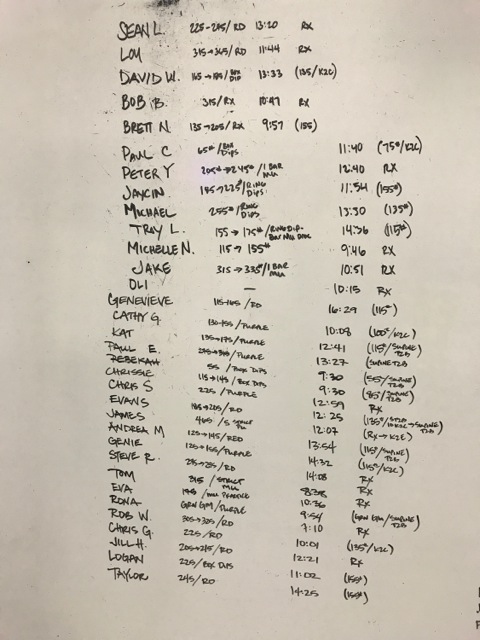 SEAN L. 225-245/RD 13:20 RX
LOU 315→365/RD 11:44 RX
DAVID W. 165→195/BOX DIP 13:33 (135/K2C)
BOB B. 315/RX 10:47 RX
BRETT N. 135→205/RX 9:57 (155)
PAUL C 65#/BOX DIPS 11:40 (75#/K2C)
PETER Y 205#→245#/1 BAR MU 12:40 RX
JAYCIN 145→225#/RING DIPS 11:54 (155#)
MICHAEL 255#/RING DIPS 13:30 (135#)
TRAY L. 155→175#/RING DIP 14:36 (115#)
MICHELLE N. 115→155# 9:46 RX
JAKE 315→335/1 BAR MU 10:51 RX
OLI — 10:15 RX
GENEVIEVE 115→165/RD 16:29 (115#)
CATHY G. 130→155/PURPLE 10:08 (100#/K2C)
KAT 135→175/PURPLE 12:41 (115#/SUPINE T2B)
PAUL E. /PURPLE 13:27 (SUPINE T2B)
REBEKAH
CHRISSIE 55/BOX DIPS 9:30 (55#/SUPINE T2B)
CHRIS S 115→145/BOX DIPS 9:30 (85#/SUPINE T2B)
EVANS 225/PURPLE 12:59 RX
JAMES 185→205/RD 12:25
ANDREA M 405/5 STRICT 12:07 (RX→K2C)
GENIE 125→145/RED 13:54 (115#/SUPINE T2B)
STEVE R. 125→155/PURPLE 14:32 (115#/K2C)
TOM /RD 14:08 RX
EVA 315/STRICT MU 8:38 RX
RONA 10:36 RX
ROB W. /PURPLE 9:54
CHRIS G. 305→325/RD 7:10 RX
JILL H. 225/RD 10:01 (135#/K2C)
LOGAN 205→215/RD 12:21 RX
TAYLOR 225/BOX DIPS 11:02 (155#)
245/RD 14:25 (155#)